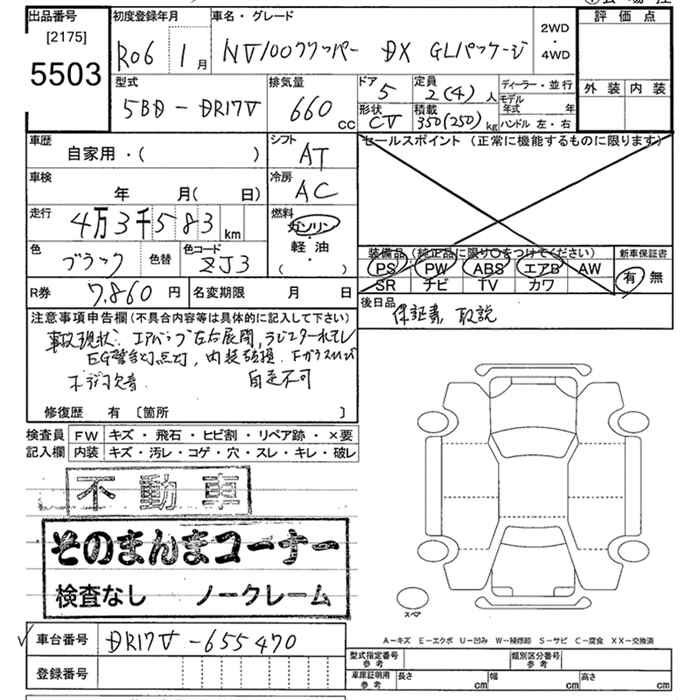 出品番号 初度登録年月 車名・グレード 評価点
[2175]
5503
R06 1月 NV100クリッパー DX GLパッケージ 2WD ・ 4WD
外装 内装
型式 排気量 ドア 定員 ディーラー・並行
5BD-DR17V 660 cc 5 2(4)人 モデル年式 年
形状 積載 ハンドル 左・右
CV 350(250)kg
車歴 シフト セールスポイント (正常に機能するものに限ります)
自家用・( ) AT
車検 冷房
年 月( 日) AC
走行 燃料
4万3千583km ガソリン
軽・油
( ・ )
色 色替 色コード 装備品 (純正品に限り○をつけてください) 新車保証書
ブラック ZJ3 PS PW ABS エアB AW 有 無
SR ナビ TV カワ
R券 7,860円 名変期限 月 日 後日品
保証書 取説
注意事項申告欄(不具合内容等は具体的に記入して下さい)
事故現状. エアバッグ左右展開, ラジエター水モレ
EG警告灯点灯, 内装破損. Fガラスヒビ
自走不可
修復歴 有 〔箇所 〕
検査員 FW キズ・飛石・ヒビ割・リペア跡・×要
記入欄 内装 キズ・汚レ・コゲ・穴・スレ・キレ・破レ
不動車
そのまんまコーナー
検査なし ノークレーム
スペア
A-キズ E-エクボ U-凹み W-補修跡 S-サビ C-腐食 XX-交換済
車台番号 DR17V-655470
登録番号
型式指定番号 参考 類別区分番号 参考
車庫証明用 参考 長さ cm 幅 cm 高さ cm